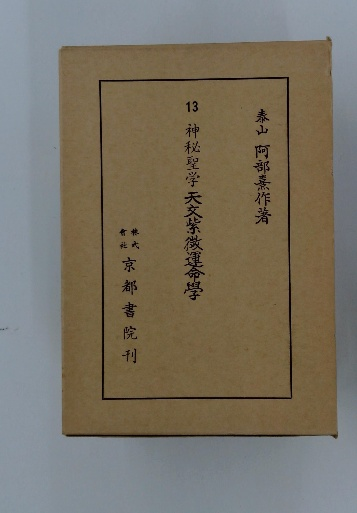 泰山 阿部熹作著
13
神秘聖学 天文紫微運命學
株式會社 京都書院刊